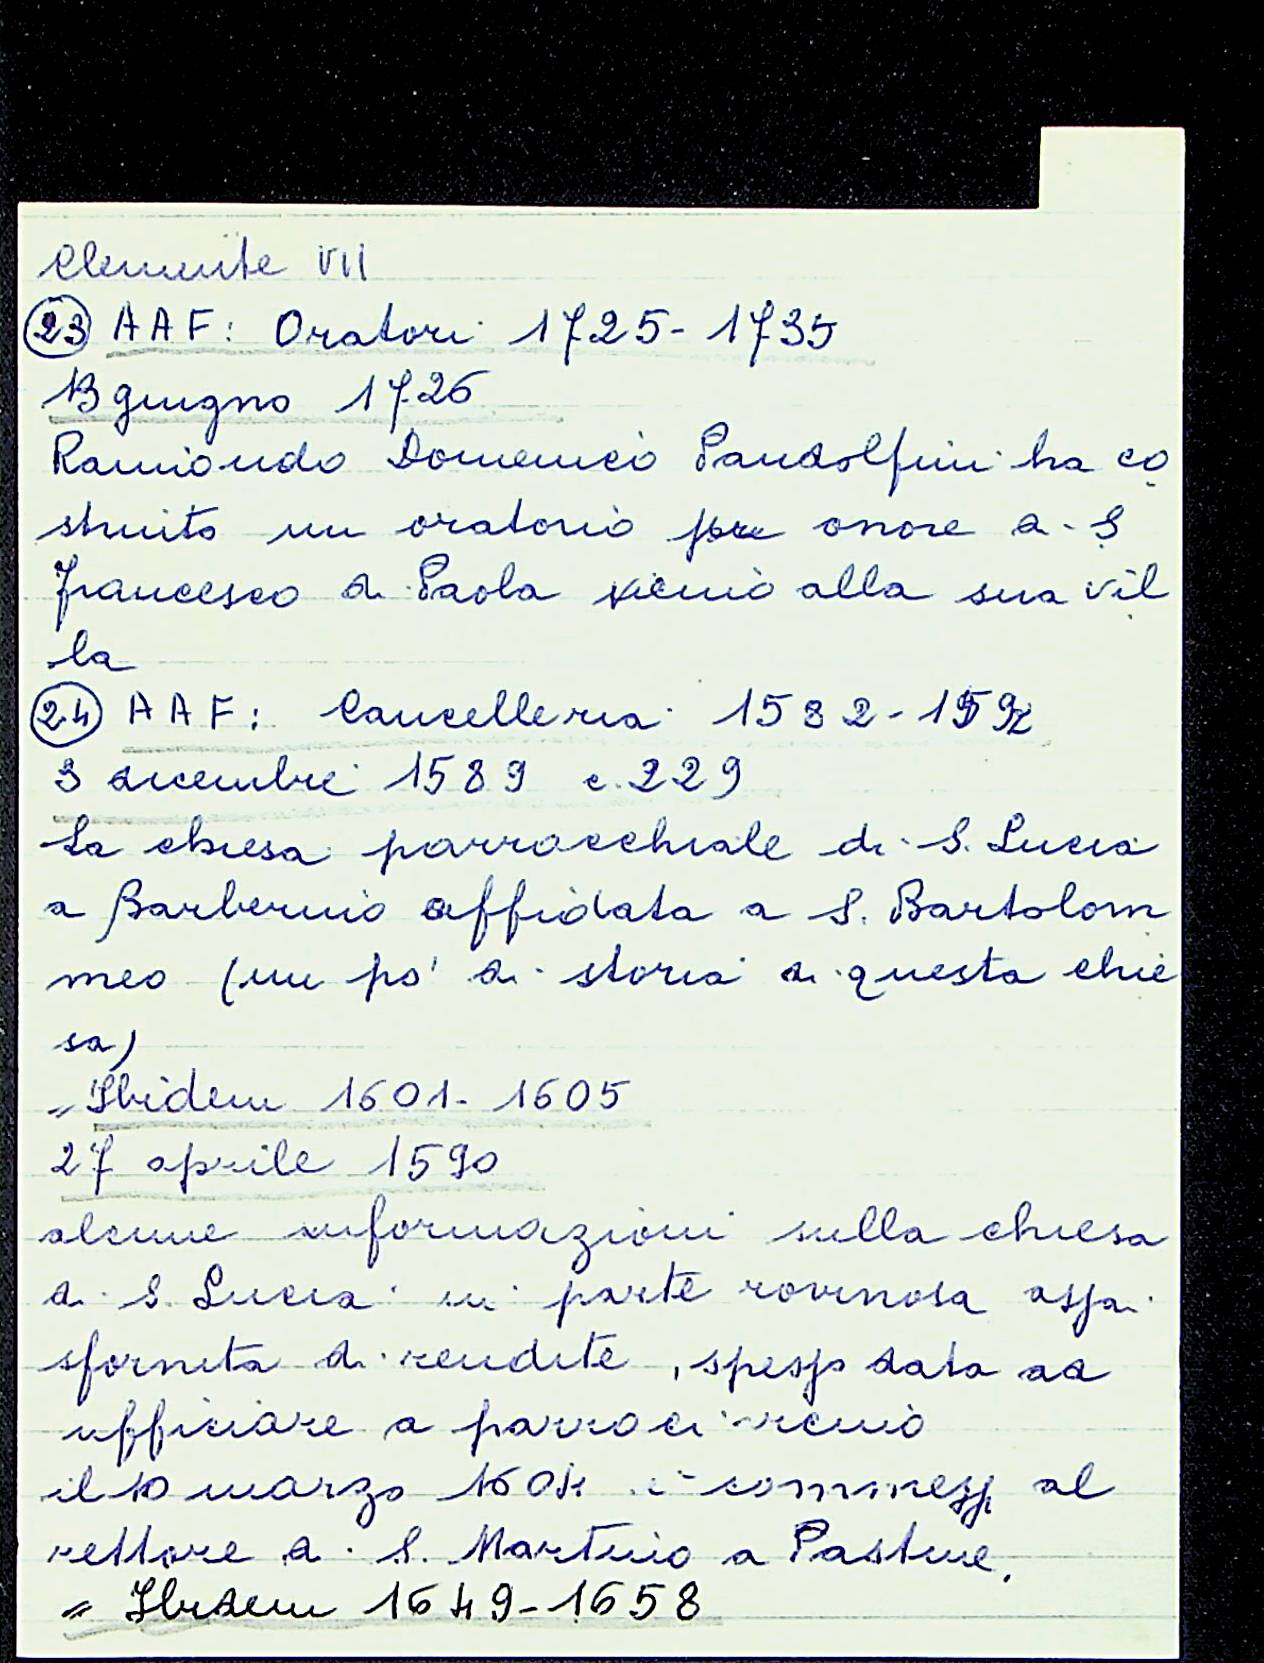 Clemente VII
23 AAF: Oratori 1725-1735
13 giugno 1726
Raimondo Domenico Pandolfini ha co
struito un oratorio in onore di S
Francesco di Paola vicino alla sua vil
la
24 AAF: Cancelleria 1582-1592
3 dicembre 1589 c. 229
La chiesa parrocchiale di S. Lucia
a Barberino affidata a S. Bartolom
meo (un po' di storia di questa chie
sa)
" Ibidem 1601-1605
27 aprile 1590
alcune informazioni sulla chiesa
di S. Lucia in parte rovinosa assai
sfornita di rendite, spesso data ad
ufficiare a parroci vicino
il 10 marzo 1604 commessa al
rettore di S. Martino a Pastine.
" Ibidem 1649-1658